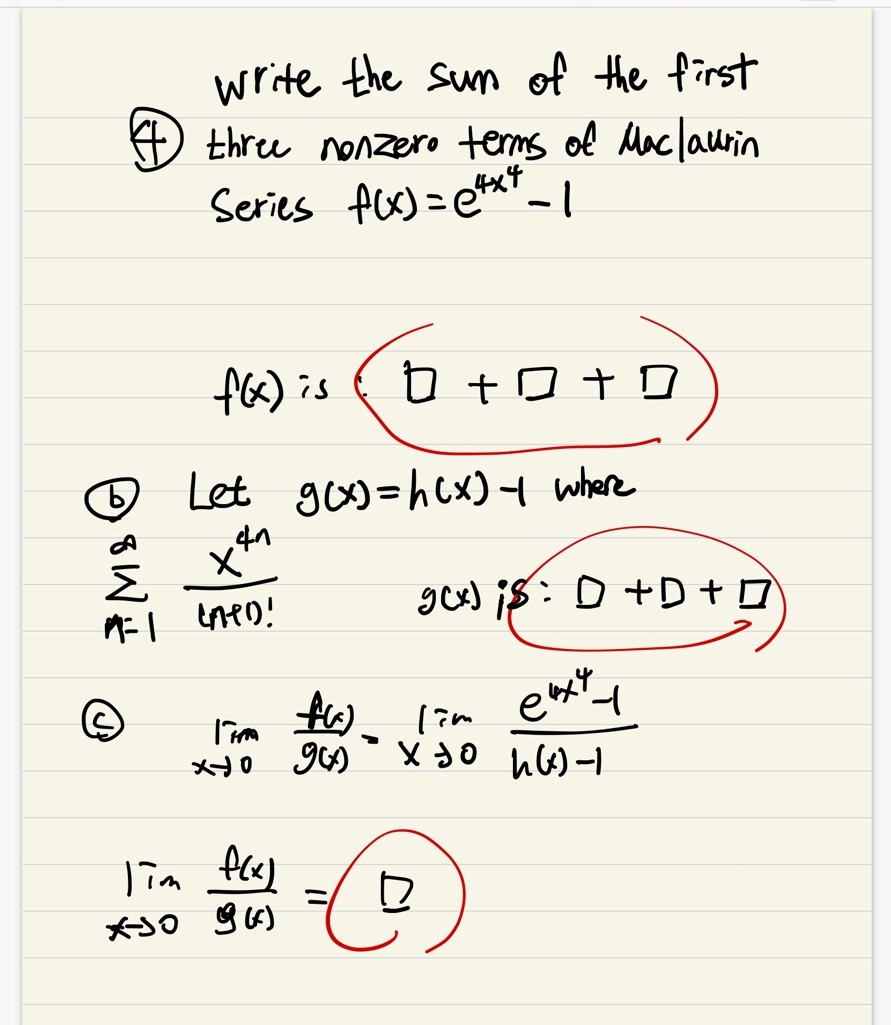 write the sum of the first
④ three nonzero terms of Maclaurin
Series f(x) = e^{4x^4} - 1
f(x) is : □ + □ + □
ⓑ Let g(x) = h(x) - 1 where
∞
Σ x^{4n} / (n+1)!
n=1
g(x) is : □ + □ + □
ⓒ lim x→0 f(x)/g(x) = lim x→0 (e^{4x^4} - 1)/(h(x) - 1)
lim x→0 f(x)/g(x) = □